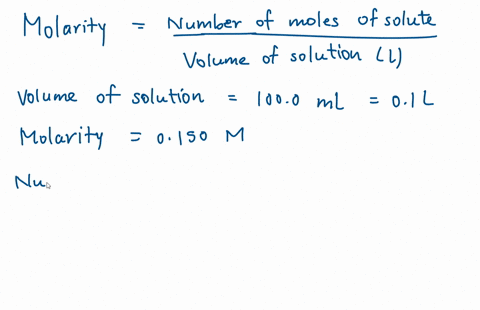 Molarity = Number of moles of solute
Volume of solution (L)
Volume of solution = 100.0 mL = 0.1 L
Molarity = 0.150 M
Nu